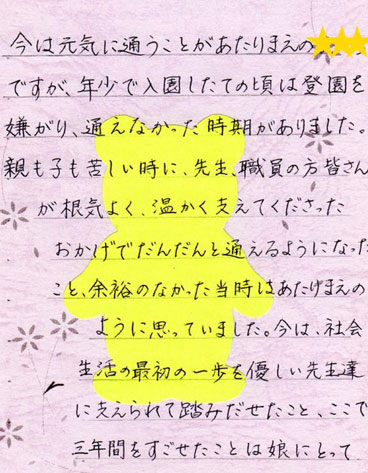 今は元気に通うことがあたりまえの
ですが、年少で入園したての頃は登園を
嫌がり、通えなかった時期がありました。
親も子も苦しい時に、先生、職員の方皆さん
が根気よく、温かく支えてくださった
おかげでだんだんと通えるようになった
こと、余裕のなかった当時はあたりまえの
ように思っていました。今は、社会
生活の最初の一歩を優しい先生達
に支えられて踏みだせたこと、ここで
三年間をすごせたことは娘にとって